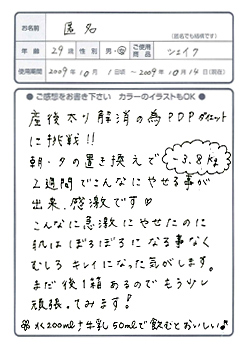 お名前 匿名
(匿名でも結構です)
年齢 29歳 性別 男・女 ご使用商品 シェイク
使用期間 2009年10月1日頃 ～ 2009年10月14日(現在)
●ご感想をお書き下さい カラーのイラストもOK●
産後太り解消の為PDPダイエット
に挑戦!!
朝・夕の置き換えで -3.8kg
2週間でこんなにやせる事が
出来、感激です♡
こんなに急激にやせたのに
肌はぼろぼろになる事なく
むしろキレイになった気がします。
まだ後1箱あるのでもう少し
頑張ってみます!
※水200ml+牛乳50mlで飲むとおいしい♪